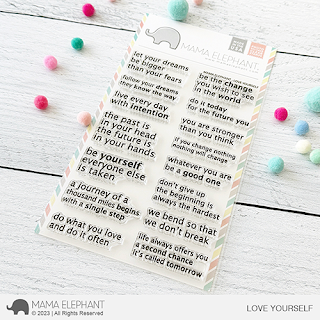 MAMA ELEPHANT
let your dreams
be bigger
than your fears
follow your dreams
they know the way
live every day
with intention
the past is
in your head
the future is
in your hands
be yourself
everyone else
is taken
a journey of a
thousand miles begins
with a single step
do what you love
and do it often
be the change
you wish to see
in the world
do it today
for the future you
you are stronger
than you think
if you change nothing
nothing will change
whatever you are
be a good one
don't give up
the beginning is
always the hardest
we bend so that
we don't break
life always offers you
a second chance
it's called tomorrow
MAMA ELEPHANT
© 2023 | All Rights Reserved
LOVE YOURSELF